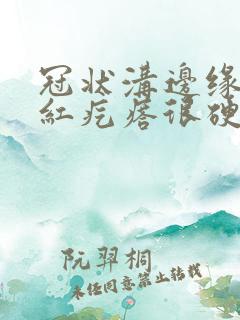 冠状溝邊缘
紅疙瘩很硬
阮羿桐
未经同意禁止转载